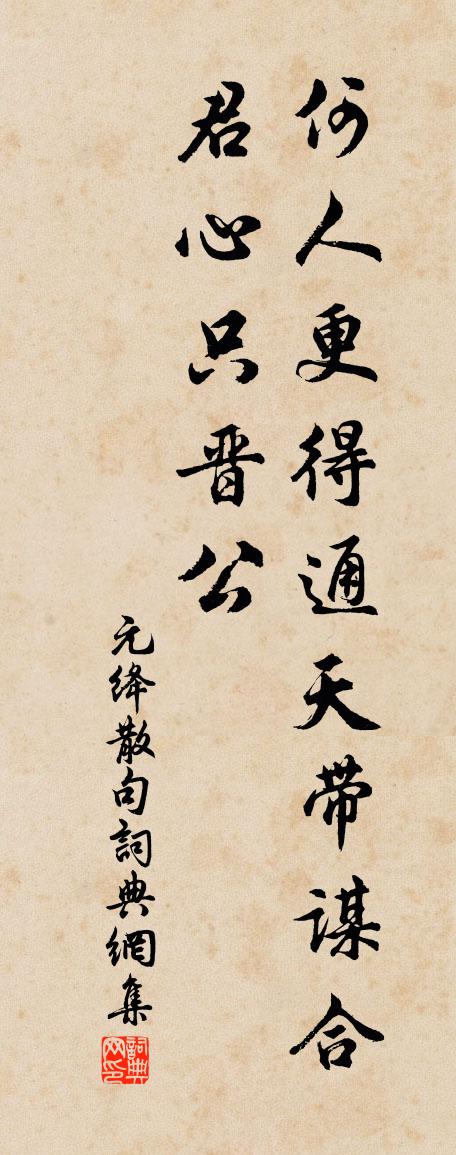 何人更得通天带谋合
君心只晋公
元绛散句詞典網集
詞典网印